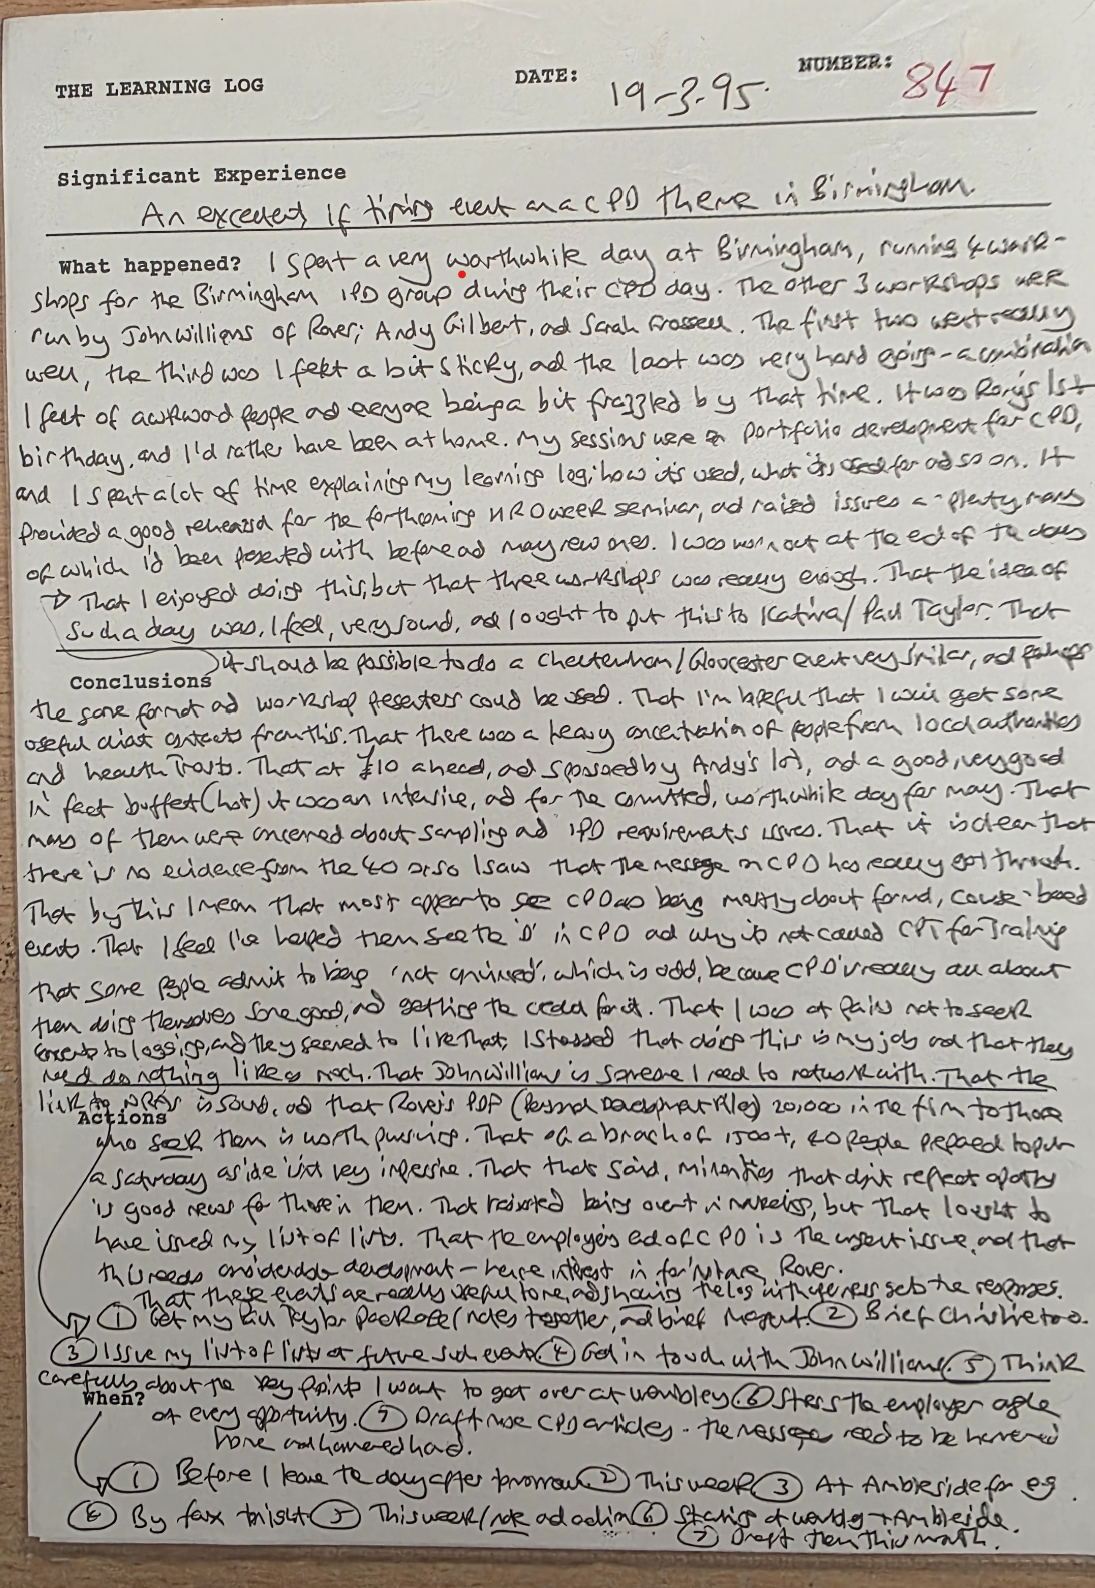 THE LEARNING LOG DATE: 19-3-95. NUMBER: 847
Significant Experience
An excellent, if tiring event on a CPD theme in Birmingham
What happened? I spent a very worthwhile day at Birmingham, running 4 work-
shops for the Birmingham IPD group during their CPD day. The other 3 workshops were
run by John Williams of Rover; Andy Gilbert, and Sarah. The first two went really
well, the third was I felt a bit sticky, and the last was very hard going - a combination
I felt of awkward people and everyone being a bit frazzled by that time. It was Rory's 1st
birthday, and I'd rather have been at home. My sessions were on portfolio development for CPD,
and I spent a lot of time explaining my learning log; how it's used, what it's used for and so on. It
provided a good rehearsal for the forthcoming HRD week seminar, and raised issues a-plenty, many
of which I'd been presented with before and many new ones. I was worn out at the end of the day
→ That I enjoyed doing this, but that three workshops was really enough. That the idea of
such a day was, I feel, very sound, and I ought to put this to Katrina/Paul Taylor. That
it should be possible to do a Cheltenham/Gloucester event very similar, and perhaps
Conclusions
the same format and workshop presenters could be used. That I'm hopeful that I will get some
useful client contacts from this. That there was a heavy concentration of people from local authorities
and health Trusts. That at £10 a head, and sponsored by Andy's lot, and a good, very good
in fact buffet (hot) it was an intensive, and for the committed, worthwhile day for many. That
many of them were concerned about sampling and IPD requirements issues. That it is clear that
there is no evidence from the 40 or so I saw that the message on CPD has really got through.
That by this I mean that most appear to see CPD as being mostly about formal, course-based
events. That I feel I've helped them see the 'D' in CPD and why it's not called CPT for Training
That some people admit to being 'not convinced', which is odd, because CPD's really all about
them doing themselves some good, and getting the credit for it. That I was at pains not to seek
converts to logging, and they seemed to like that; I stressed that doing this is my job and that they
need do nothing like as much. That John Williams is someone I need to network with. That the
link to NRA's is sound, and that Rover's PDF (Personal Development Files) 20,000 in the firm to those
Actions
who seek them is worth pursuing. That of a branch of 1500+, 40 people prepared to put
a Saturday aside isn't very impressive. That that said, minorities that don't reflect apathy
is good news for those in them. That I resisted being overt in marketing, but that I ought to
have issued my list of lists. That the employers end of CPD is the urgent issue, and that
this needs considerable development - hence interest in for instance, Rover.
That these events are really useful to me, and showing the log with genuine gets the responses.
① Get my Paul Taylor package/notes together, and brief Margaret. ② Brief Christie too.
③ Issue my list of lists at future such events. ④ Get in touch with John Williams. ⑤ Think
carefully about the key points I want to get over at Wembley. ⑥ Stress the employer angle
When?
at every opportunity. ⑦ Draft more CPD articles - the messages need to be hammered
home and hammered hard.
① Before I leave the day after tomorrow ② This week ③ At Ambleside for eg.
④ By fax tonight ⑤ This week/note ad ⑥ Starting at Wembley + Ambleside.
⑦ Draft them this month.